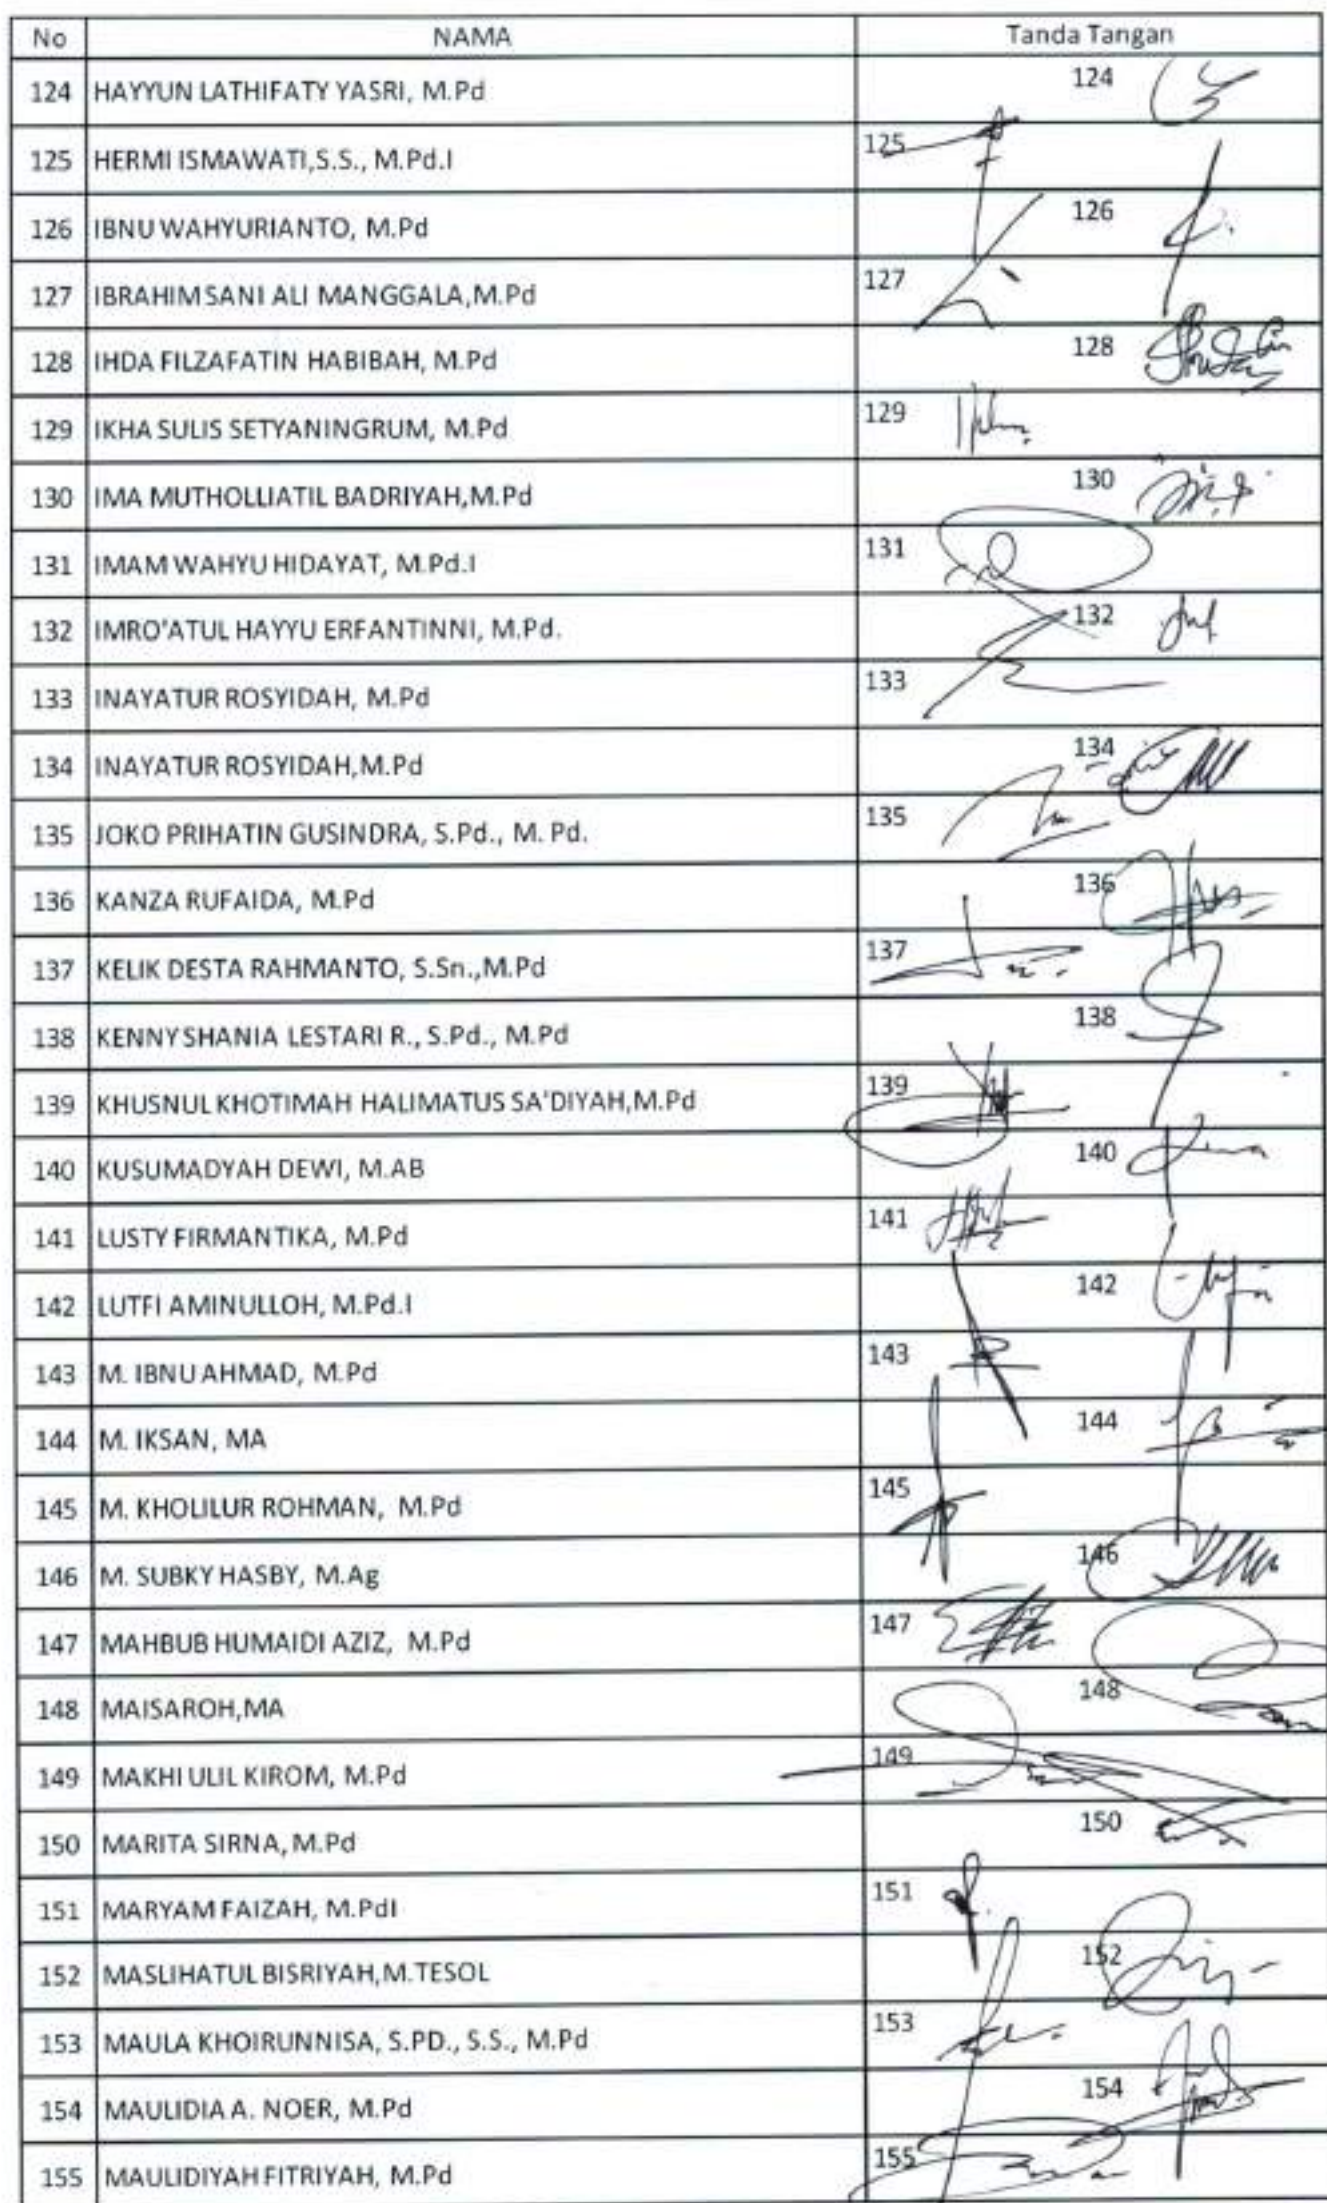 No NAMA Tanda Tangan
124 HAYYUN LATHIFATY YASRI, M.Pd 124
125 HERMI ISMAWATI,S.S., M.Pd.I 125
126 IBNU WAHYURIANTO, M.Pd 126
127 IBRAHIM SANI ALI MANGGALA,M.Pd 127
128 IHDA FILZAFATIN HABIBAH, M.Pd 128
129 IKHA SULIS SETYANINGRUM, M.Pd 129
130 IMA MUTHOLLIATIL BADRIYAH,M.Pd 130
131 IMAM WAHYU HIDAYAT, M.Pd.I 131
132 IMRO'ATUL HAYYU ERFANTINNI, M.Pd. 132
133 INAYATUR ROSYIDAH, M.Pd 133
134 INAYATUR ROSYIDAH,M.Pd 134
135 JOKO PRIHATIN GUSINDRA, S.Pd., M. Pd. 135
136 KANZA RUFAIDA, M.Pd 136
137 KELIK DESTA RAHMANTO, S.Sn.,M.Pd 137
138 KENNY SHANIA LESTARI R., S.Pd., M.Pd 138
139 KHUSNUL KHOTIMAH HALIMATUS SA'DIYAH,M.Pd 139
140 KUSUMADYAH DEWI, M.AB 140
141 LUSTY FIRMANTIKA, M.Pd 141
142 LUTFI AMINULLOH, M.Pd.I 142
143 M. IBNU AHMAD, M.Pd 143
144 M. IKSAN, MA 144
145 M. KHOLILUR ROHMAN, M.Pd 145
146 M. SUBKY HASBY, M.Ag 146
147 MAHBUB HUMAIDI AZIZ, M.Pd 147
148 MAISAROH,MA 148
149 MAKHI ULIL KIROM, M.Pd 149
150 MARITA SIRNA, M.Pd 150
151 MARYAM FAIZAH, M.PdI 151
152 MASLIHATUL BISRIYAH,M.TESOL 152
153 MAULA KHOIRUNNISA, S.PD., S.S., M.Pd 153
154 MAULIDIA A. NOER, M.Pd 154
155 MAULIDIYAH FITRIYAH, M.Pd 155